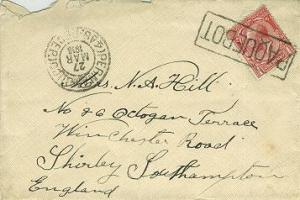 PAQUEBOT
27
MAR
Mrs. N. A. Hill.
No 26 Octogan Terrace
Winchester Road
Shirley Southampton
England